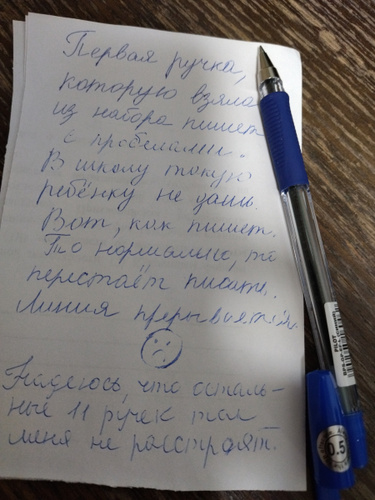 Первая ручка,
которую взяла
из набора пишет
с пробелами.
В школу такую
ребёнку не дашь.
Вот, как пишет.
То нормально, то
перестаёт писать.
Линия прерывается.
Надеюсь, что осталь-
ные 11 ручек так
меня не расстроят.
PILOT
0.5